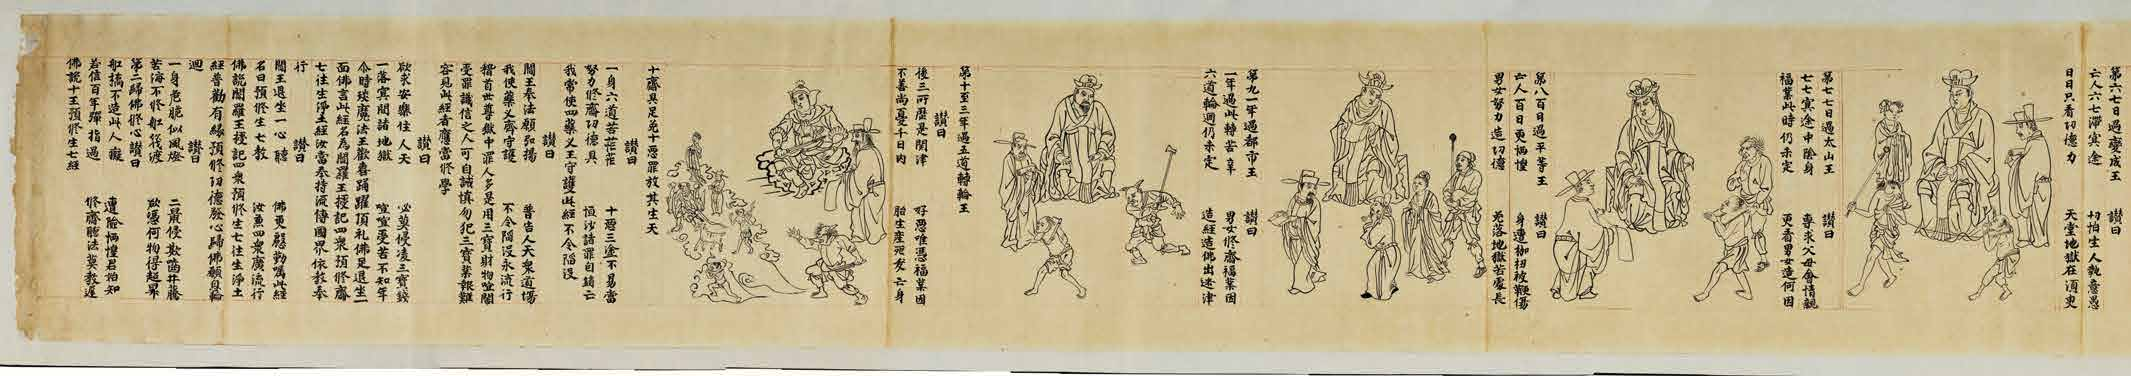 第六七日過變成王　讚曰
亡人六七滯冥途　切怕生人執意愚
日日只看功德力　天堂地獄在須臾
第七七日過太山王　讚曰
七七冥途中陰身　專求父母會情親
福業此時仍未定　更看男女造何因
第八百日過平等王　讚曰
亡人百日更恓惶　身遭枷杻被鞭傷
男女努力造功德　免落地獄苦處長
第九一年過都市王　讚曰
一年過此轉苦辛　男女修齋福業因
六道輪迴仍未定　造經造佛出迷津
第十至三年過五道轉輪王
讚曰
後三所歷是關津　好惡唯憑福業因
不善尚憂千日內　胎生產死夭亡身
十齋具足免十惡罪放其生天
讚曰
一身六道苦茫茫　十惡三塗不易當
努力修齋功德具　恒沙諸罪自銷亡
我常使四藥叉王守護此經不令陷沒
讚曰
閻王奉法願弘揚　普告人天衆道場
我使藥叉齊守護　不令陷沒永流行
稽首世尊獄中罪人多是用三寶財物喧鬧
受罪識信之人可自誡慎勿犯三寶業報難
容見此經者應當修學
讚曰
欲求安樂住人天　必莫侵凌三寶錢
一落冥間諸地獄　喧喧受苦不知年
尒時琰魔法王歡喜踊躍頂礼佛足退坐一
面佛言此經名為閻羅王授記四衆預修齋
七往生淨土經汝當奉持流傳國界依教奉
行　讚曰
閻王退坐一心聽　佛更慇懃囑此經
名曰預修生七教　汝兼四衆廣流行
佛說閻羅王授記四衆預修生七往生淨土
經普勸有緣預修功德發心歸佛願息輪
迴　讚曰
一身危脆似風燈　二鼠侵欺嚙井藤
苦海不修船筏渡　欲憑何物得超昇
第二歸佛修心讚曰
船橋不造此人癡　遭險恓惶君始知
若信百年彈指過　修齋聽法莫教遲
佛說十王預修生七經